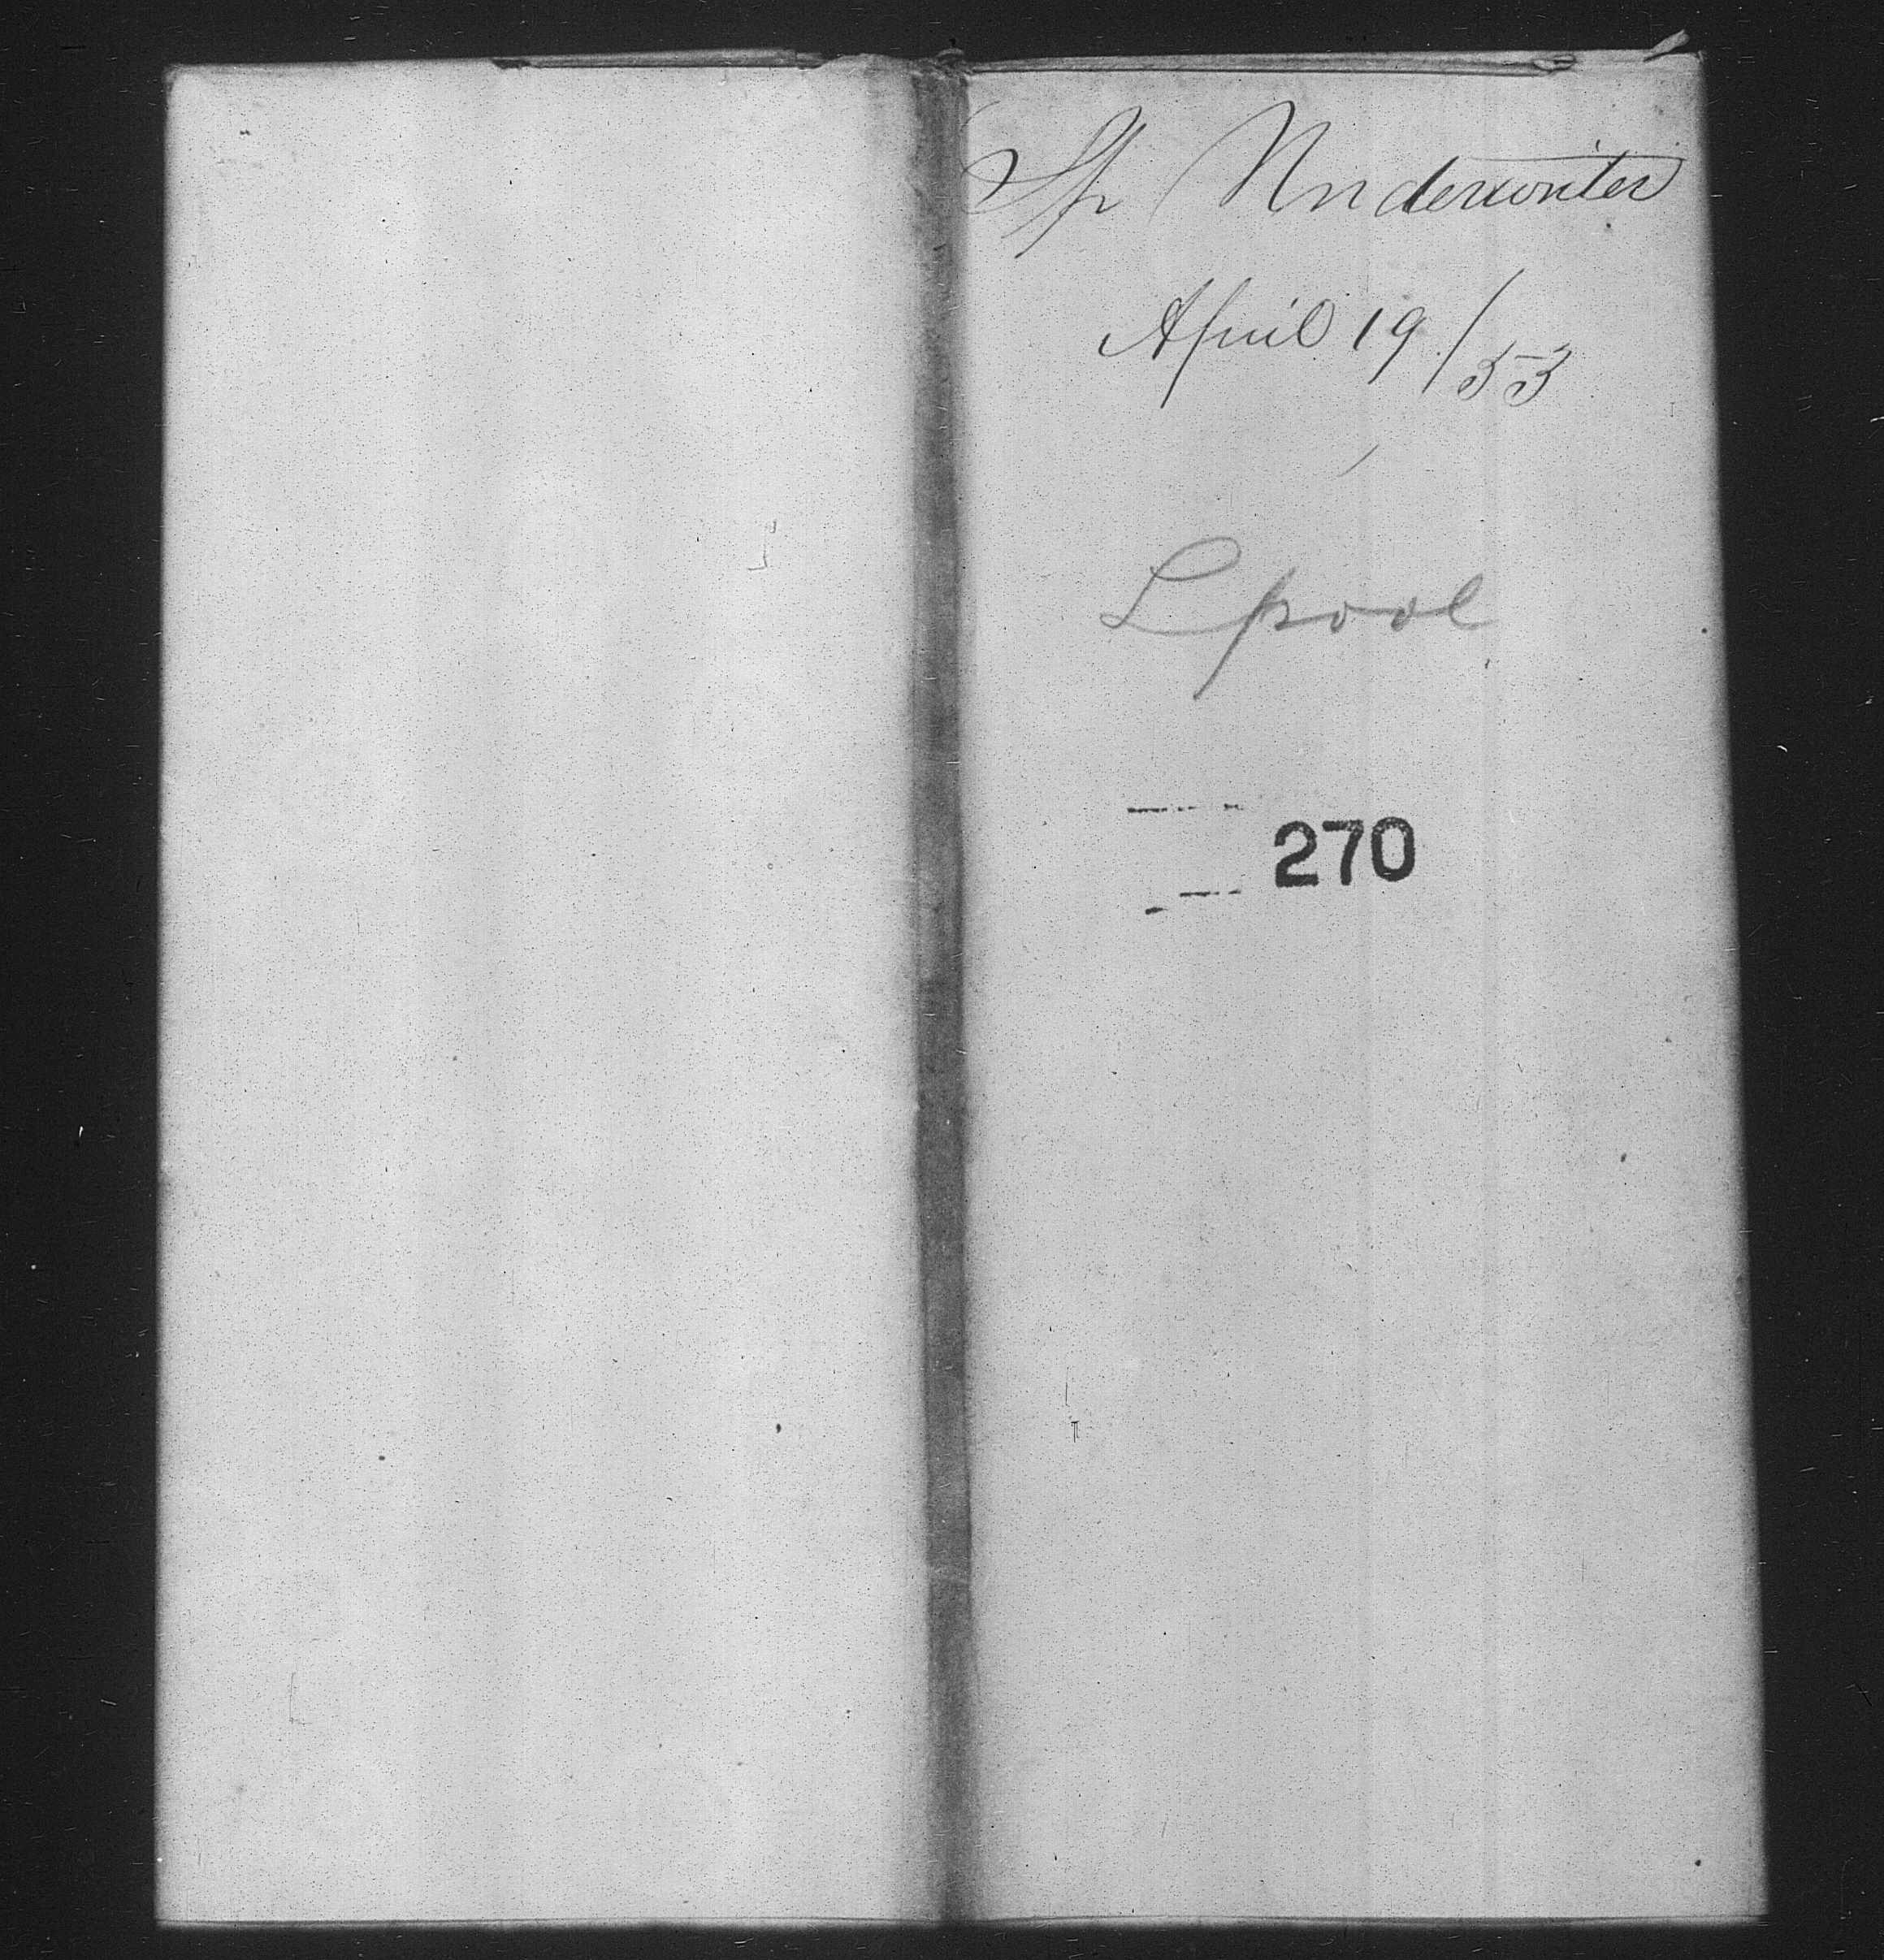 Sp Underwriter
April 19/53
Lpool
270